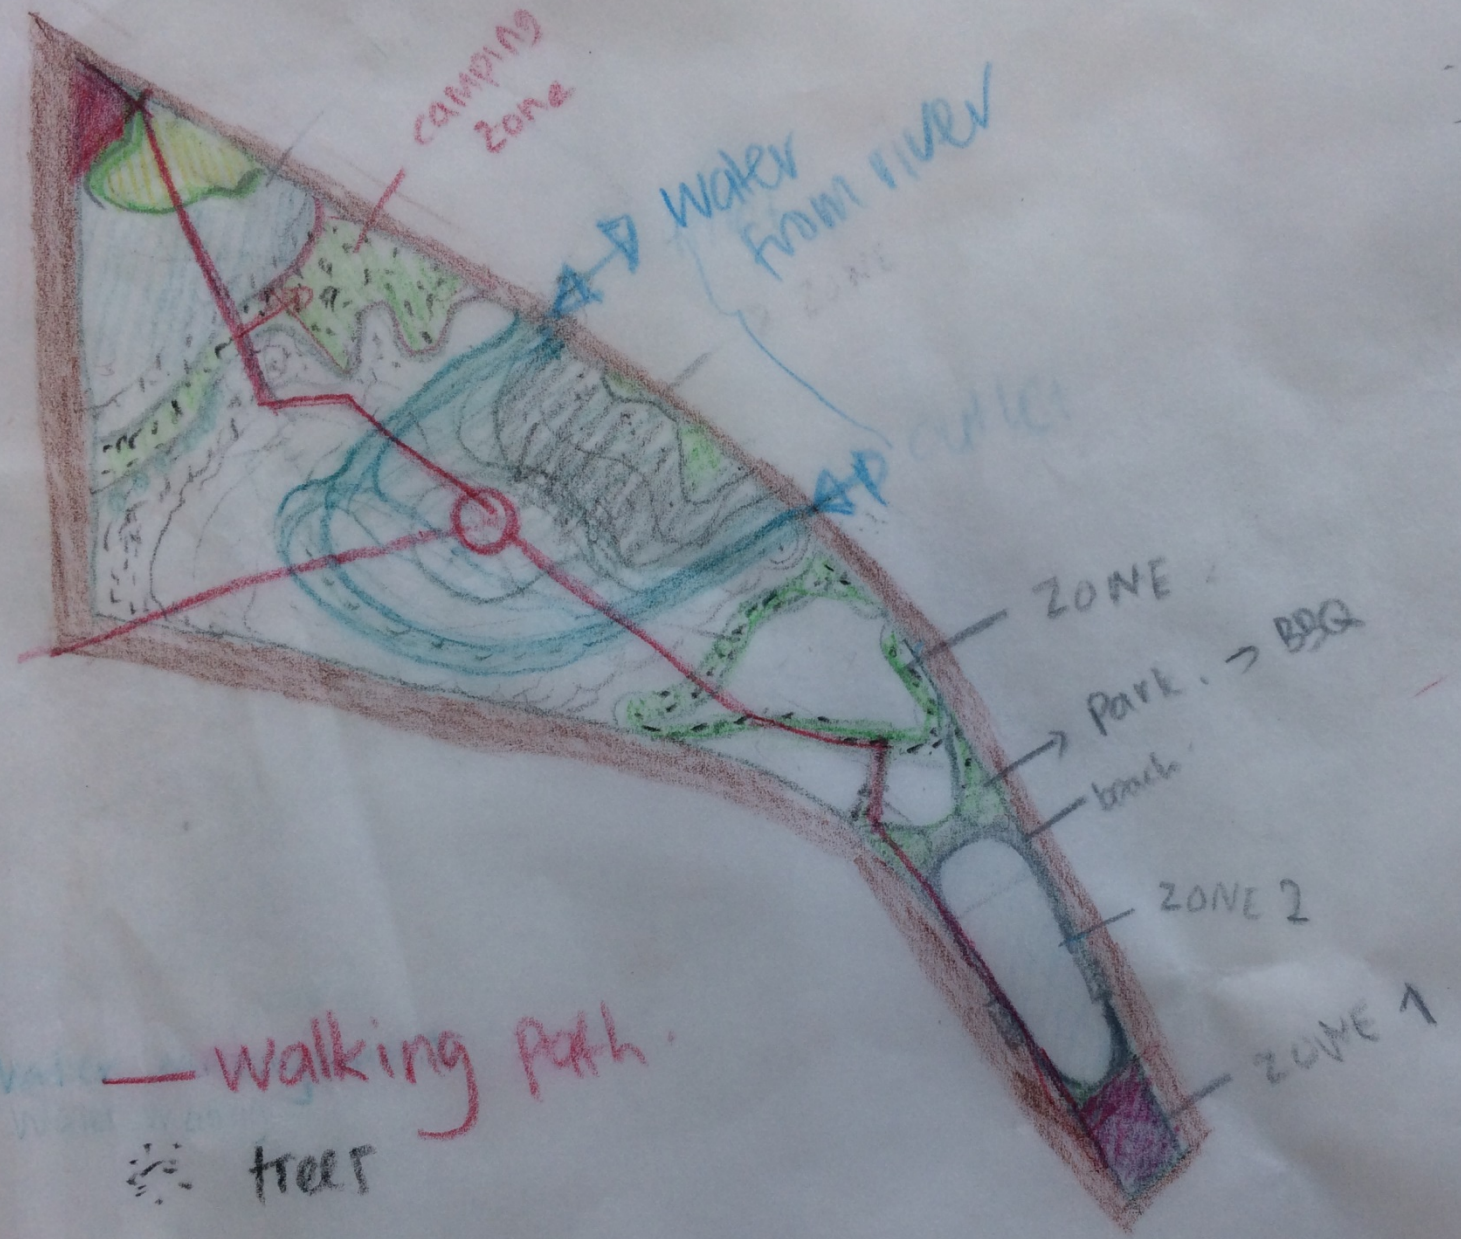 camping
zone
water
From river
ZONE
outlet
ZONE
Park. → BBQ
beach
ZONE 2
ZONE 1
walking path.
trees